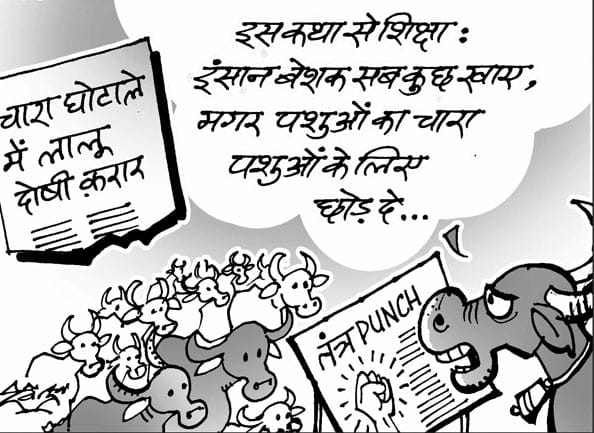 चारा घोटाले
में लालू
दोषी क़रार
इस कथा से शिक्षा :
इंसान बेशक सब कुछ खाए,
मगर पशुओं का चारा
पशुओं के लिए
छोड़ दे...
तंत्र PUNCH